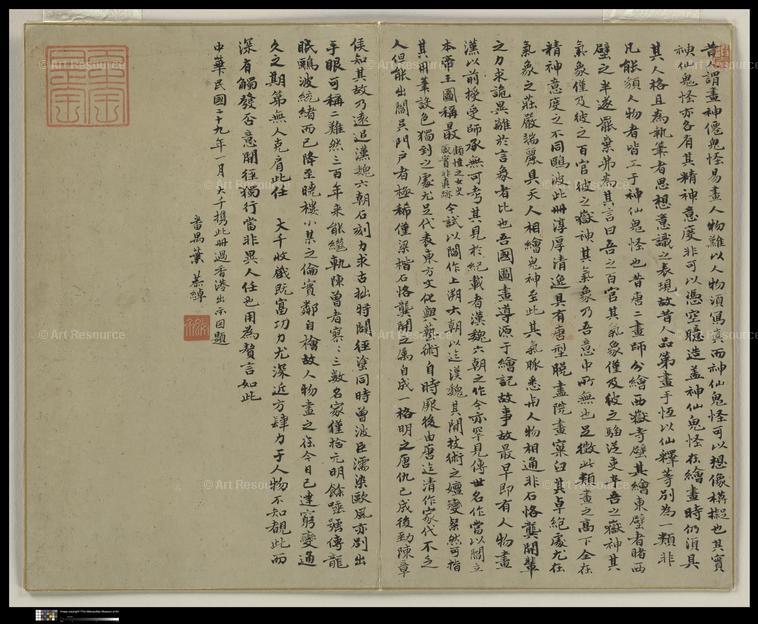 昔人謂畫神僊鬼怪易畫人物難以人物須寫真而神仙鬼怪可以想像模擬也其實
神仙鬼怪亦各有其精神意度非可以憑空臆造蓋神仙鬼怪在繪畫時仍須具
其人格且為執筆者思想意識之表現故昔人品第畫手恆以仙釋等別為一類非
凡能類人物者皆工于神仙鬼怪也昔唐二畫師分繪西嶽寺壁其繪東壁者睹西
壁之半遂罷棄弟焉其言曰吾之百官其氣象僅及彼之騶從吏卒吾之嶽神其
氣象僅及彼之百官彼之嶽神其氣象乃吾意中所無也足徵此類畫之高下全在
精神意度之不同鷗波此冊渾厚清遒具有唐型脫盡院畫窠臼其卓絕處尤在
氣象之莊嚴端麗具天人相繪鬼神至此其氣脈悉與人物相通非石恪龔開輩
之力求詭異離於言象者比也吾國圖畫導源于繪記故事故最早即有人物畫
漢以前授受師承無可考其見於紀載者漢魏六朝之作今亦罕見傳世名作當以閻立
本帝王圖稱最顧愷之女史箴實非真跡今試以閻作上溯六朝以迄漢魏其間技術之嬗變粲然可指
其用筆設色獨到之處尤足代表東方文化與藝術自時厥後由唐迄清作家代不乏
人但能出閻吳門戶者極稀僅梁楷石恪龔開之屬自成一格明之唐仇已成後勁陳章
侯知其故乃遠追漢魏六朝石刻力求古拙特闢徑塗同時曾波臣濡染歐風亦別出
手眼可稱二難然三百年來能繼軌陳曾者寥寥三數名家僅拾元明餘唾強傳龍
眠鷗波統緒而已降至曉樓小某之倫實鄰自檜故人物畫之在今日已達窮變通
久之期第無人克肩此任 大千收藏既富功力尤深近方肆力于人物不知覩此而
深有觸發否意闢徑獨行當非異人任也用為贅言如此
中華民國二十九年一月大千携此冊過香港出示因題
番禺葉恭綽
© Art Resource
© Art Resource
© Art Resource
© Art Resource
© Art Resource
© Art Resource
© Art Resource
© Art Resource
© Art Resource